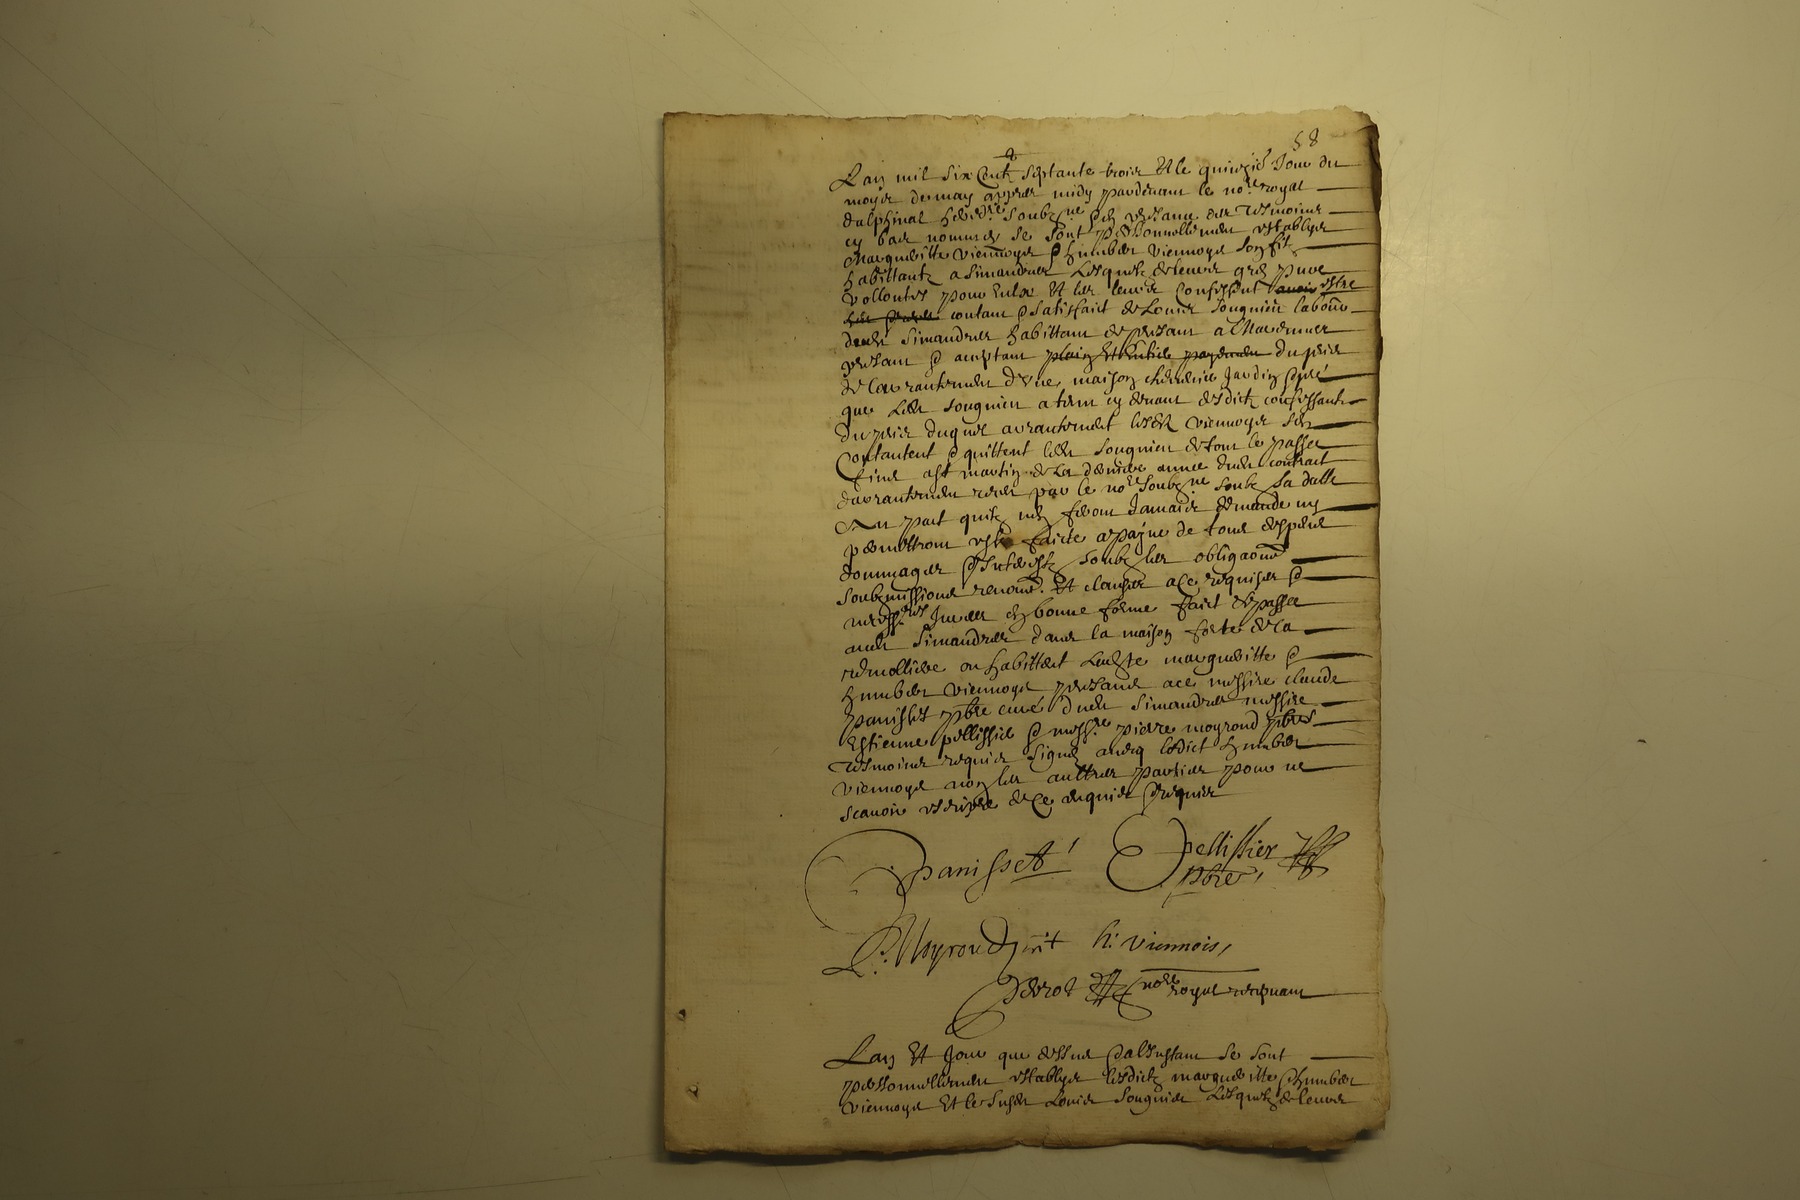 58
Lan mil six Centz septante trois Et le quinzie Jour du
moys de may appres midy pardevant le nore royal
dalphinal heredre soubzne et en presance des tesmoins
cy bas nommes se sont personnellement establys
Margueritte viennoys et humbert viennoys son filz
habittantz a simandres Lesquelz de leurs gres pures
vollontes pour eulx Et les leurs confessent avoir estre
contant et satisfaict de Louis Souguier labour
dudt simandres habittant de presant a
presant et aceptant plain Et Entier payement du prix
de larrantement dune maison jardin et pré
que ledt souguier a tenu cy devant desdictz confessantz
Du prix duquel arrantement lesdtz viennoys sen
Contantent et quittent ledt souguier de tout le passé
finy a st martin de la derniere annee dudt contract
darrantement receu par le nore soubzne soubz sa datte
Au part quilz nen feront Jamais demande ny
permettront estre faicte a payne de tous despens
dommages et interestz soubz les obligaons
soubzmissions renont. Et clauses a ce requises et
necessres Jurees en bonne forme faict et passé
audt simandres dans la maison forte de la
ou habittent lesdts margueritte et
humbert viennoys presans a ce messire claude
panisset pbre curé dudt simandres messire
Estienne pellissier et messre pierre moyroud pbres
tesmoins requis signes avecq ledict humbert
viennoys non les aultres parties pour ne
scavoir escripre de ce enquis et requis
Panisset
Pellissier
pbre
P. Moyroud pnt h: viennois,
Perrot nore royal recepvant
Lan Et Jour que dessus et a linstant se sont
personnellement establys lesdictz margueritte et humbert
viennoys Et le susdt Louis souguier Lesquelz de leurs